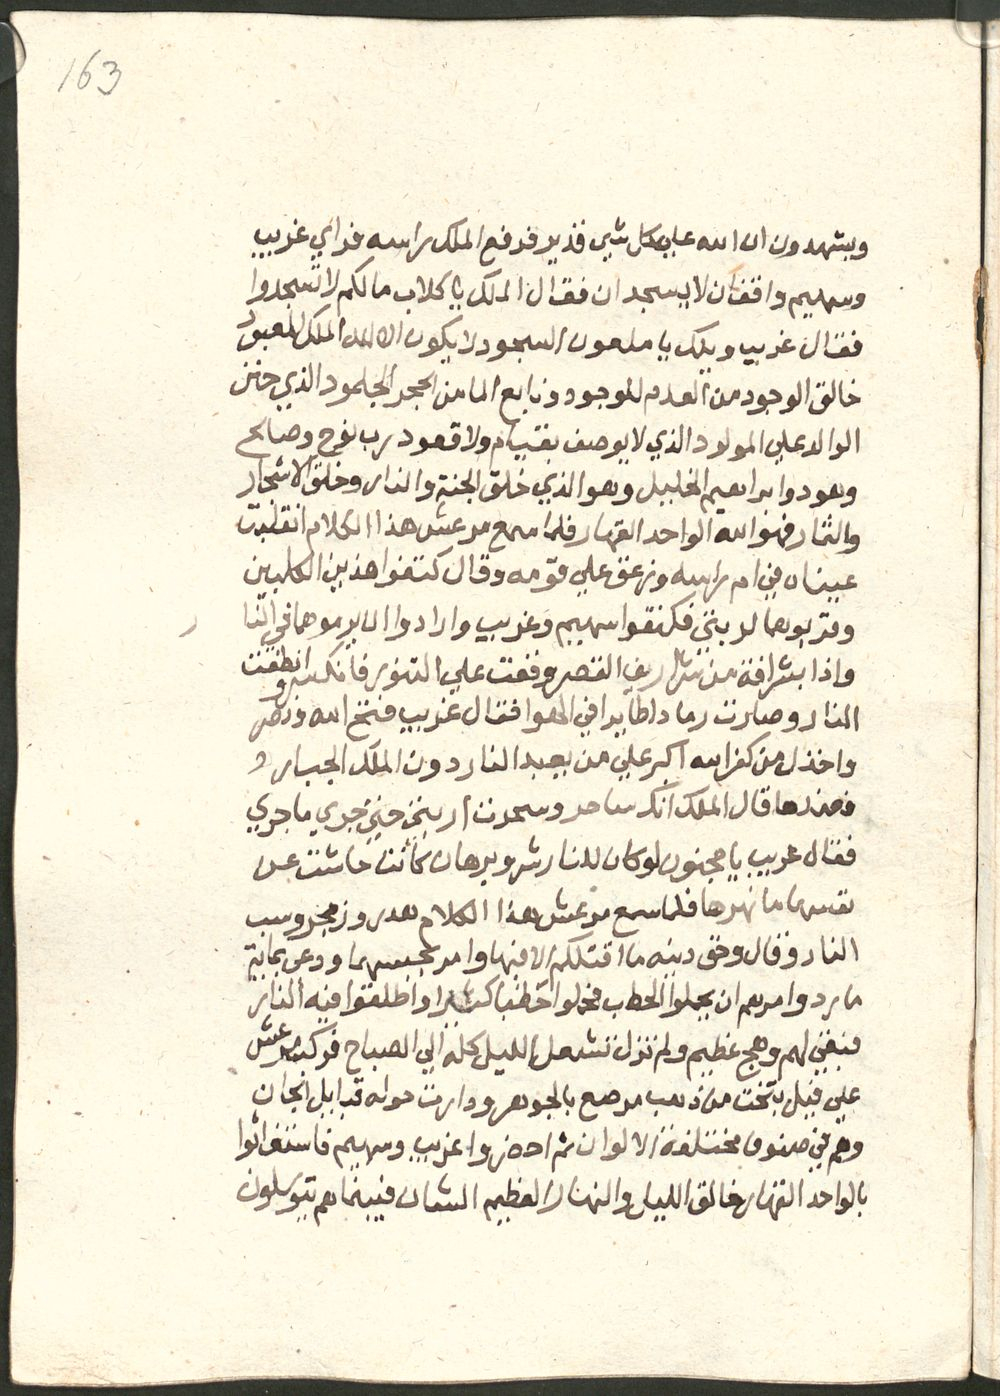 163
ويشهدون ان الله على كل شي قدير فرفع الملك راسه فراي غريب
وسهيم واقفان لا يسجدان فقال الملك يا كلاب مالكم لا تسجدوا
فقال غريب ويلك يا ملعون السجود لا يكون الا لله الملك المعبود
خالق الوجود من العدم للوجود ونابع الما من الحجر الجلمود الذي حنن
الوالد علي المولود الذي لا يوصف بقيام ولا قعود رب نوح وصالح
وهود وابراهيم الخليل وهو الذي خلق الجنة والنار وخلق الاشجار
والثمار فهو الله الواحد القهار فلما سمع مرعش هذا الكلام انقلبت
عيناه في ام راسه وزعق علي قومه وقال كتفوا هذين الكلبين
وقربوهما لربتي فكتفوا سهيم وغريب وارادوا ان يرموهما في النا
ر
واذا بشرافة من شراريف القصر وقعت علي التنور فانكسر و انطفت
النار وصارت رمادا طايرا في الهوا فقال غريب فتح الله ونصر
واخذل من كفر الله اكبر علي من يعبد النار دون الملك الجبار
فعندها قال الملك انك ساحر وسحرت اربتي حتي جري ما جري
فقال غريب يا مجنون لو كان للنار شر وبرهان كانت حاشت عن
نفسها ما نهرها فلما سمع مرعش هذا الكلام هدر وزمجر وسب
النار وقال وحق دينه ما اقتلكم الا فيها وامر بحبسهما ودعى بماية
مارد وامرهم ان يحملوا الحطب فحملوا حطبا كثيرا واطلقوا فيه النار
فبقي لهم وهج عظيم ولم تزل تشعل الليل كله الي الصباح فركب مرعش
علي فيل بتخت من ذهب مرصع بالجوهر ودارت حوله قبايل الجان
وهم في صنوف مختلفة الالوان ثم احضروا غريب وسهيم فاستغاثوا
بالواحد القهار خالق الليل والنهار العظيم الشان فبينما هم يتوسلون